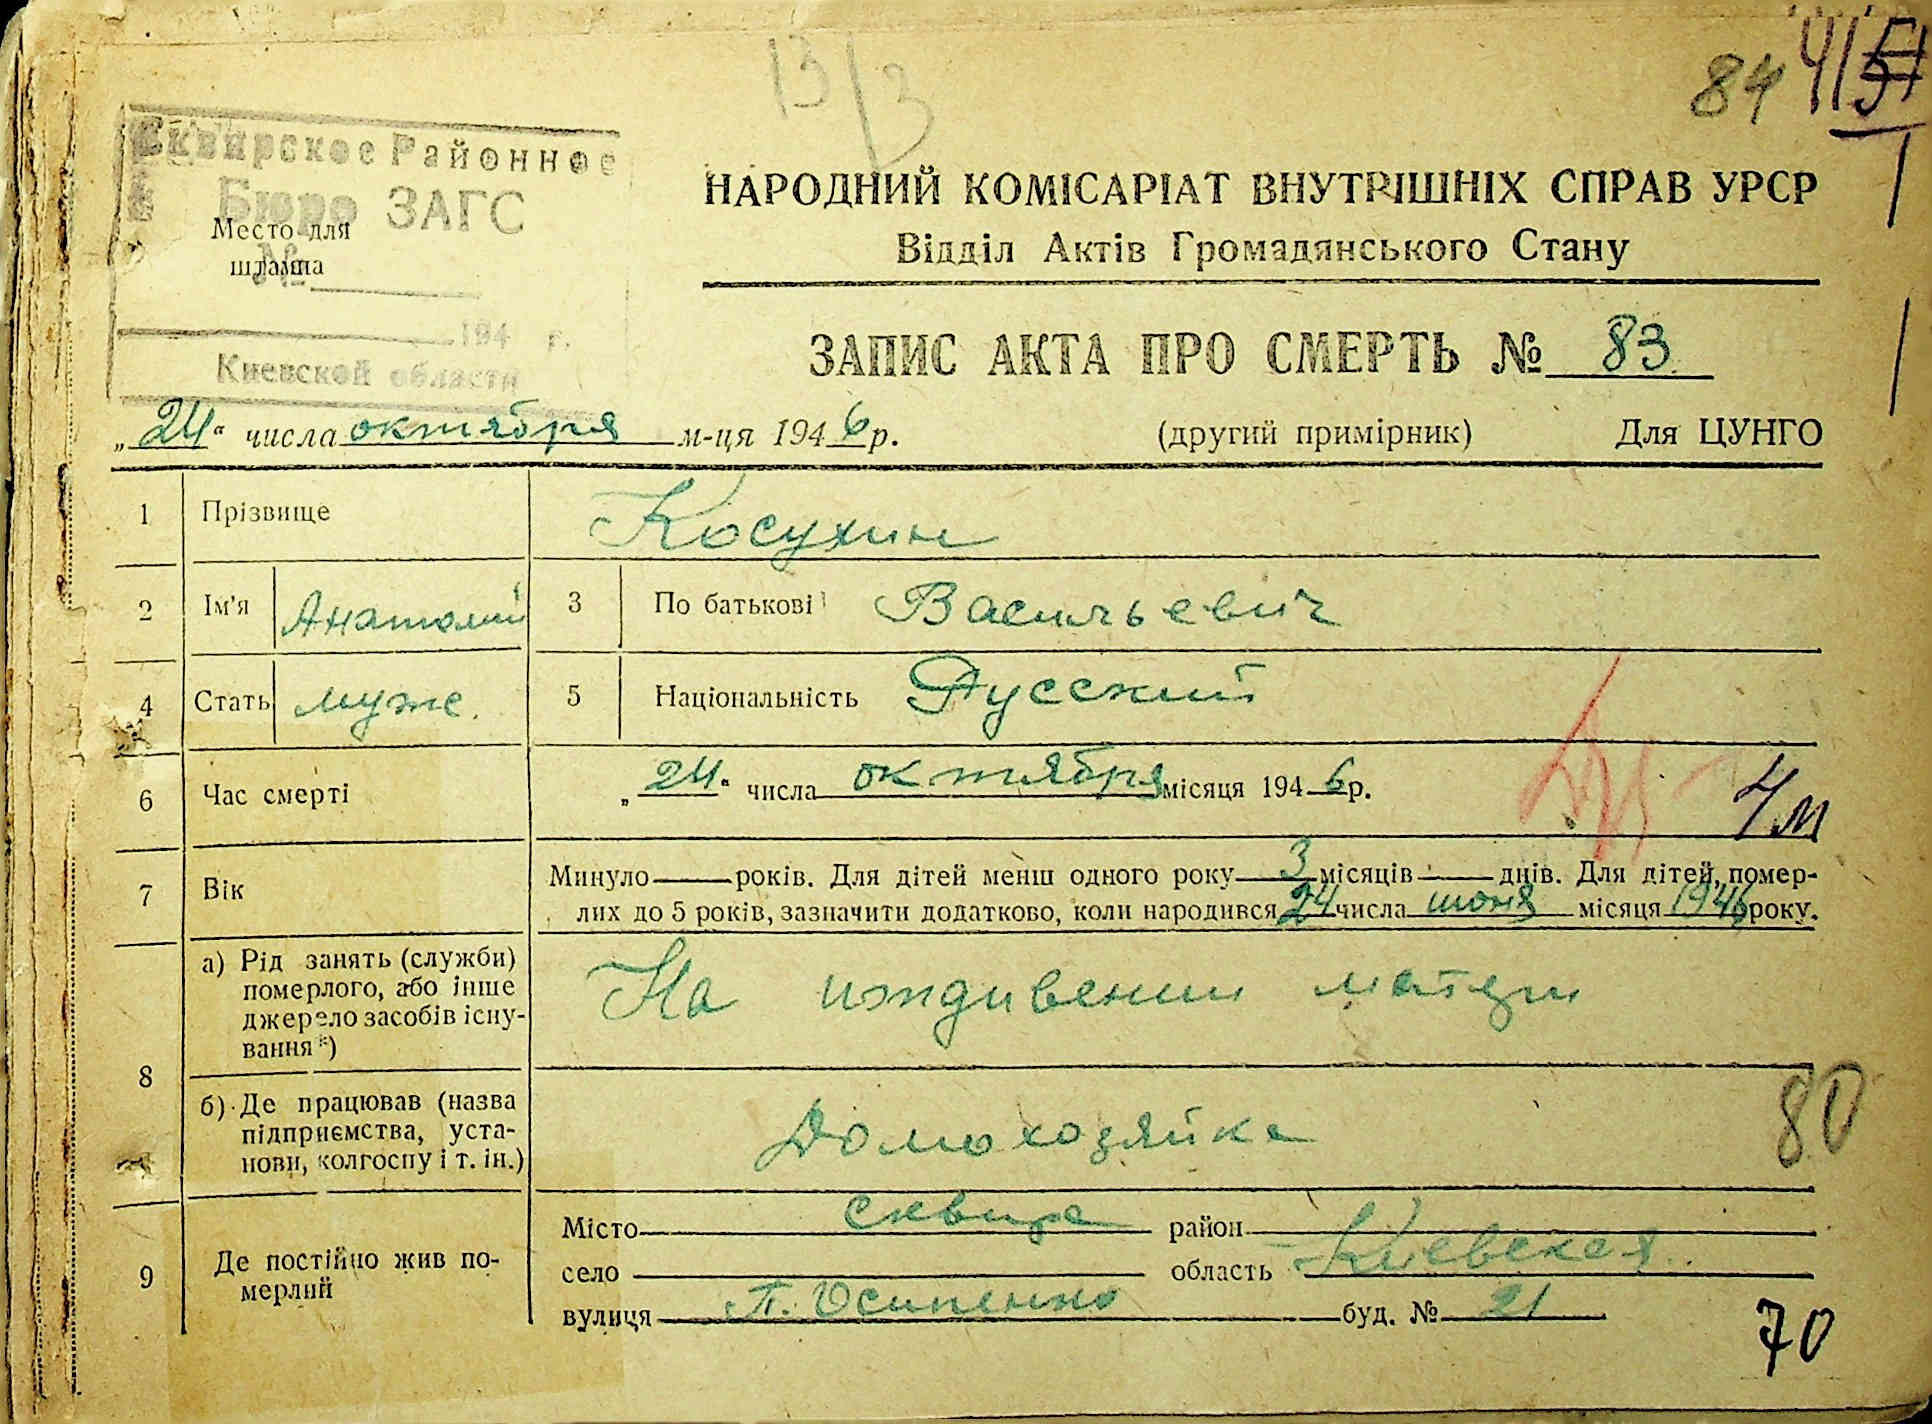 13/3
84
Сквирское Районное
Бюро ЗАГС
Место для
штампа
№
194 г.
Киевской области
НАРОДНИЙ КОМІСАРІАТ ВНУТРІШНІХ СПРАВ УРСР
Відділ Актів Громадянського Стану
ЗАПИС АКТА ПРО СМЕРТЬ № 83
„24“ числа октября м-ця 1946 р. (другий примірник) Для ЦУНГО
1 Прізвище Косухин
2 Ім'я Анатолий 3 По батькові Васильевич
4 Стать муже. 5 Національність Русский
6 Час смерті „24“ числа октября місяця 1946 р.
4 м
7 Вік Минуло — років. Для дітей менш одного року 3 місяців — днів. Для дітей, помер-
лих до 5 років, зазначити додатково, коли народився 24 числа июня місяця 1946 року.
8 а) Рід занять (служби)
померлого, або інше
джерело засобів існу-
вання*)
На иждивении матери
б) Де працював (назва
підприємства, уста-
нови, колгоспу і т. ін.)
Домохозяйка
80
9 Де постійно жив по-
мерлий
Місто Сквира район
село область Киевская
вулиця П. Осипенко буд. № 21
70